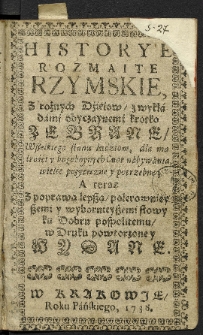 S-27
HISTORYE
ROZMAITE
RZYMSKIE,
Z rożnych Dźieiow / z wykłá
dámi obyczáynemi krotko
ZEBRANE /
Wszelkiego stanu ludźiom, dla mą
drości y
wielce pożyteczne y potrzebne.
A teraz
Z popráwą lepszą / polerowniey
szemi y wybornieyszemi słowy
ku Dobru pospolitemu /
w Druku powtorzone y
WYDANE
W KRAKOWIE,
Roku Páńskiego, 1738.